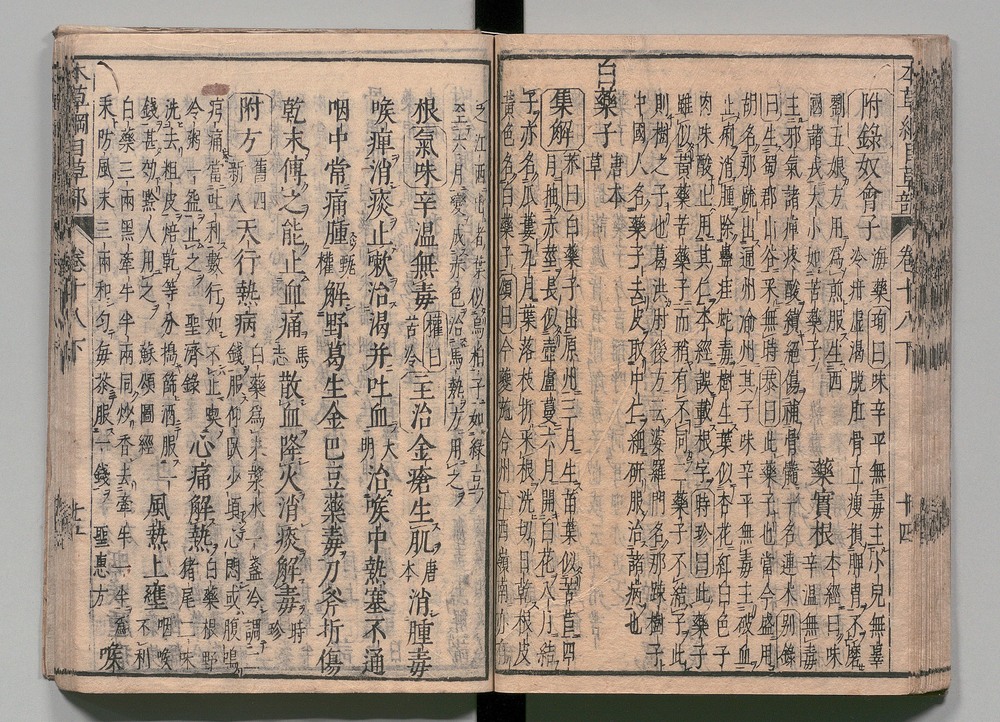 附錄奴會子 海藥珣曰味辛平無毒主小兒無辜
冷疳虛渴脫肛骨立瘦損脾胃不磨
劉五娘方用為煎服生西
國諸戎大小如苦藥子 藥實根 本經曰味
辛溫無毒
主邪氣諸痺疼酸續絕傷補骨髓一名連木別錄
曰生蜀郡山谷采無時恭曰此藥子也當今盛用
胡名那疏出通州渝州其子味辛平無毒主破血
止痢消腫除蠱疰蛇毒樹生葉似杏花紅白色子
肉味酸止用其仁本經誤載根字時珍曰此藥子
雖似黃藥苦藥子而稍有不同二藥子不結子此
則樹之子也葛洪肘後方云婆羅門名那疎樹子
中國人名藥子去皮取中仁細研服治諸病也
白藥子 唐本草
集解 恭曰白藥子出原州三月生苗葉似苦苣四
月抽赤莖長似壺盧蔓六月開白花八月結
子亦名瓜蔞九月葉落枝折采根洗切日乾根皮
黃色名白藥子頌曰今夔施合州江西嶺南亦
之江西出者葉似烏桕子如綠豆
至六月變成赤色治馬熱方用之
根氣味辛溫無毒 權曰苦冷 主治金瘡生肌 唐本 消腫毒
喉痺消痰止嗽治渴并吐血 大明 治喉中熱塞不通
咽中常痛腫 甄權 解野葛生金巴豆藥毒刀斧折傷
乾末傅之能止血痛 馬志 散血降火消痰解毒 時珍
附方 舊四新八 天行熱病 白藥為末漿水一盞冷調
錢服仰臥少頃心悶或腹鳴
疞痛當吐利數行如不止喫
冷粥一盌止之 聖濟錄 心痛解熱 白藥根野
豬尾二味
洗去粗皮焙乾等分搗篩酒服一
錢甚效黔人用之 蘇頌圖經 風熱上壅 咽喉
不利
白藥三兩黑牽牛半兩同炒香去牽牛一半為
末防風末三兩和勻每茶服一錢 聖惠方 喉
本草綱目草部 卷十八下 廿四
本草綱目草部 卷十八下 廿五